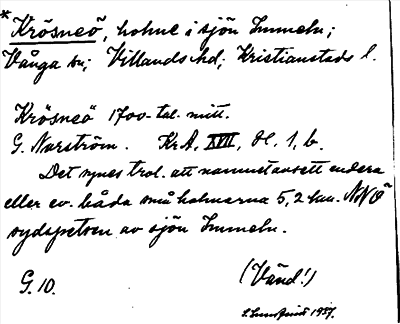 * Krösneö, holme i sjön Immeln;
Vånga sn; Villands hd; Kristianstads l.
Krösneö 1700-tal. mitt.
G. Norström. KrA. XVII, H. 1, b.
Det synes trol. att namnet avsett endera
eller ev. båda små holmarna 5,2 km. NNÖ
sydspetsen av sjön Immeln.
G. 10.
(Vänd!)
1937.